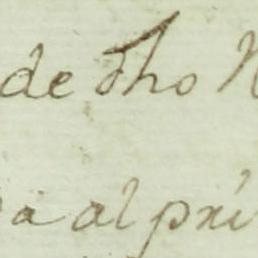 de dho N
a al pri